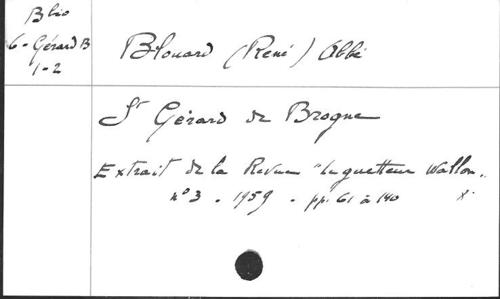 Blio
6-Gérard B
1-2
Blouard (René) Abbé
St Gérard de Brogne
Extrait de la Revue "Le guetteur Wallon„
n° 3 - 1959 - pp. 61 à 140